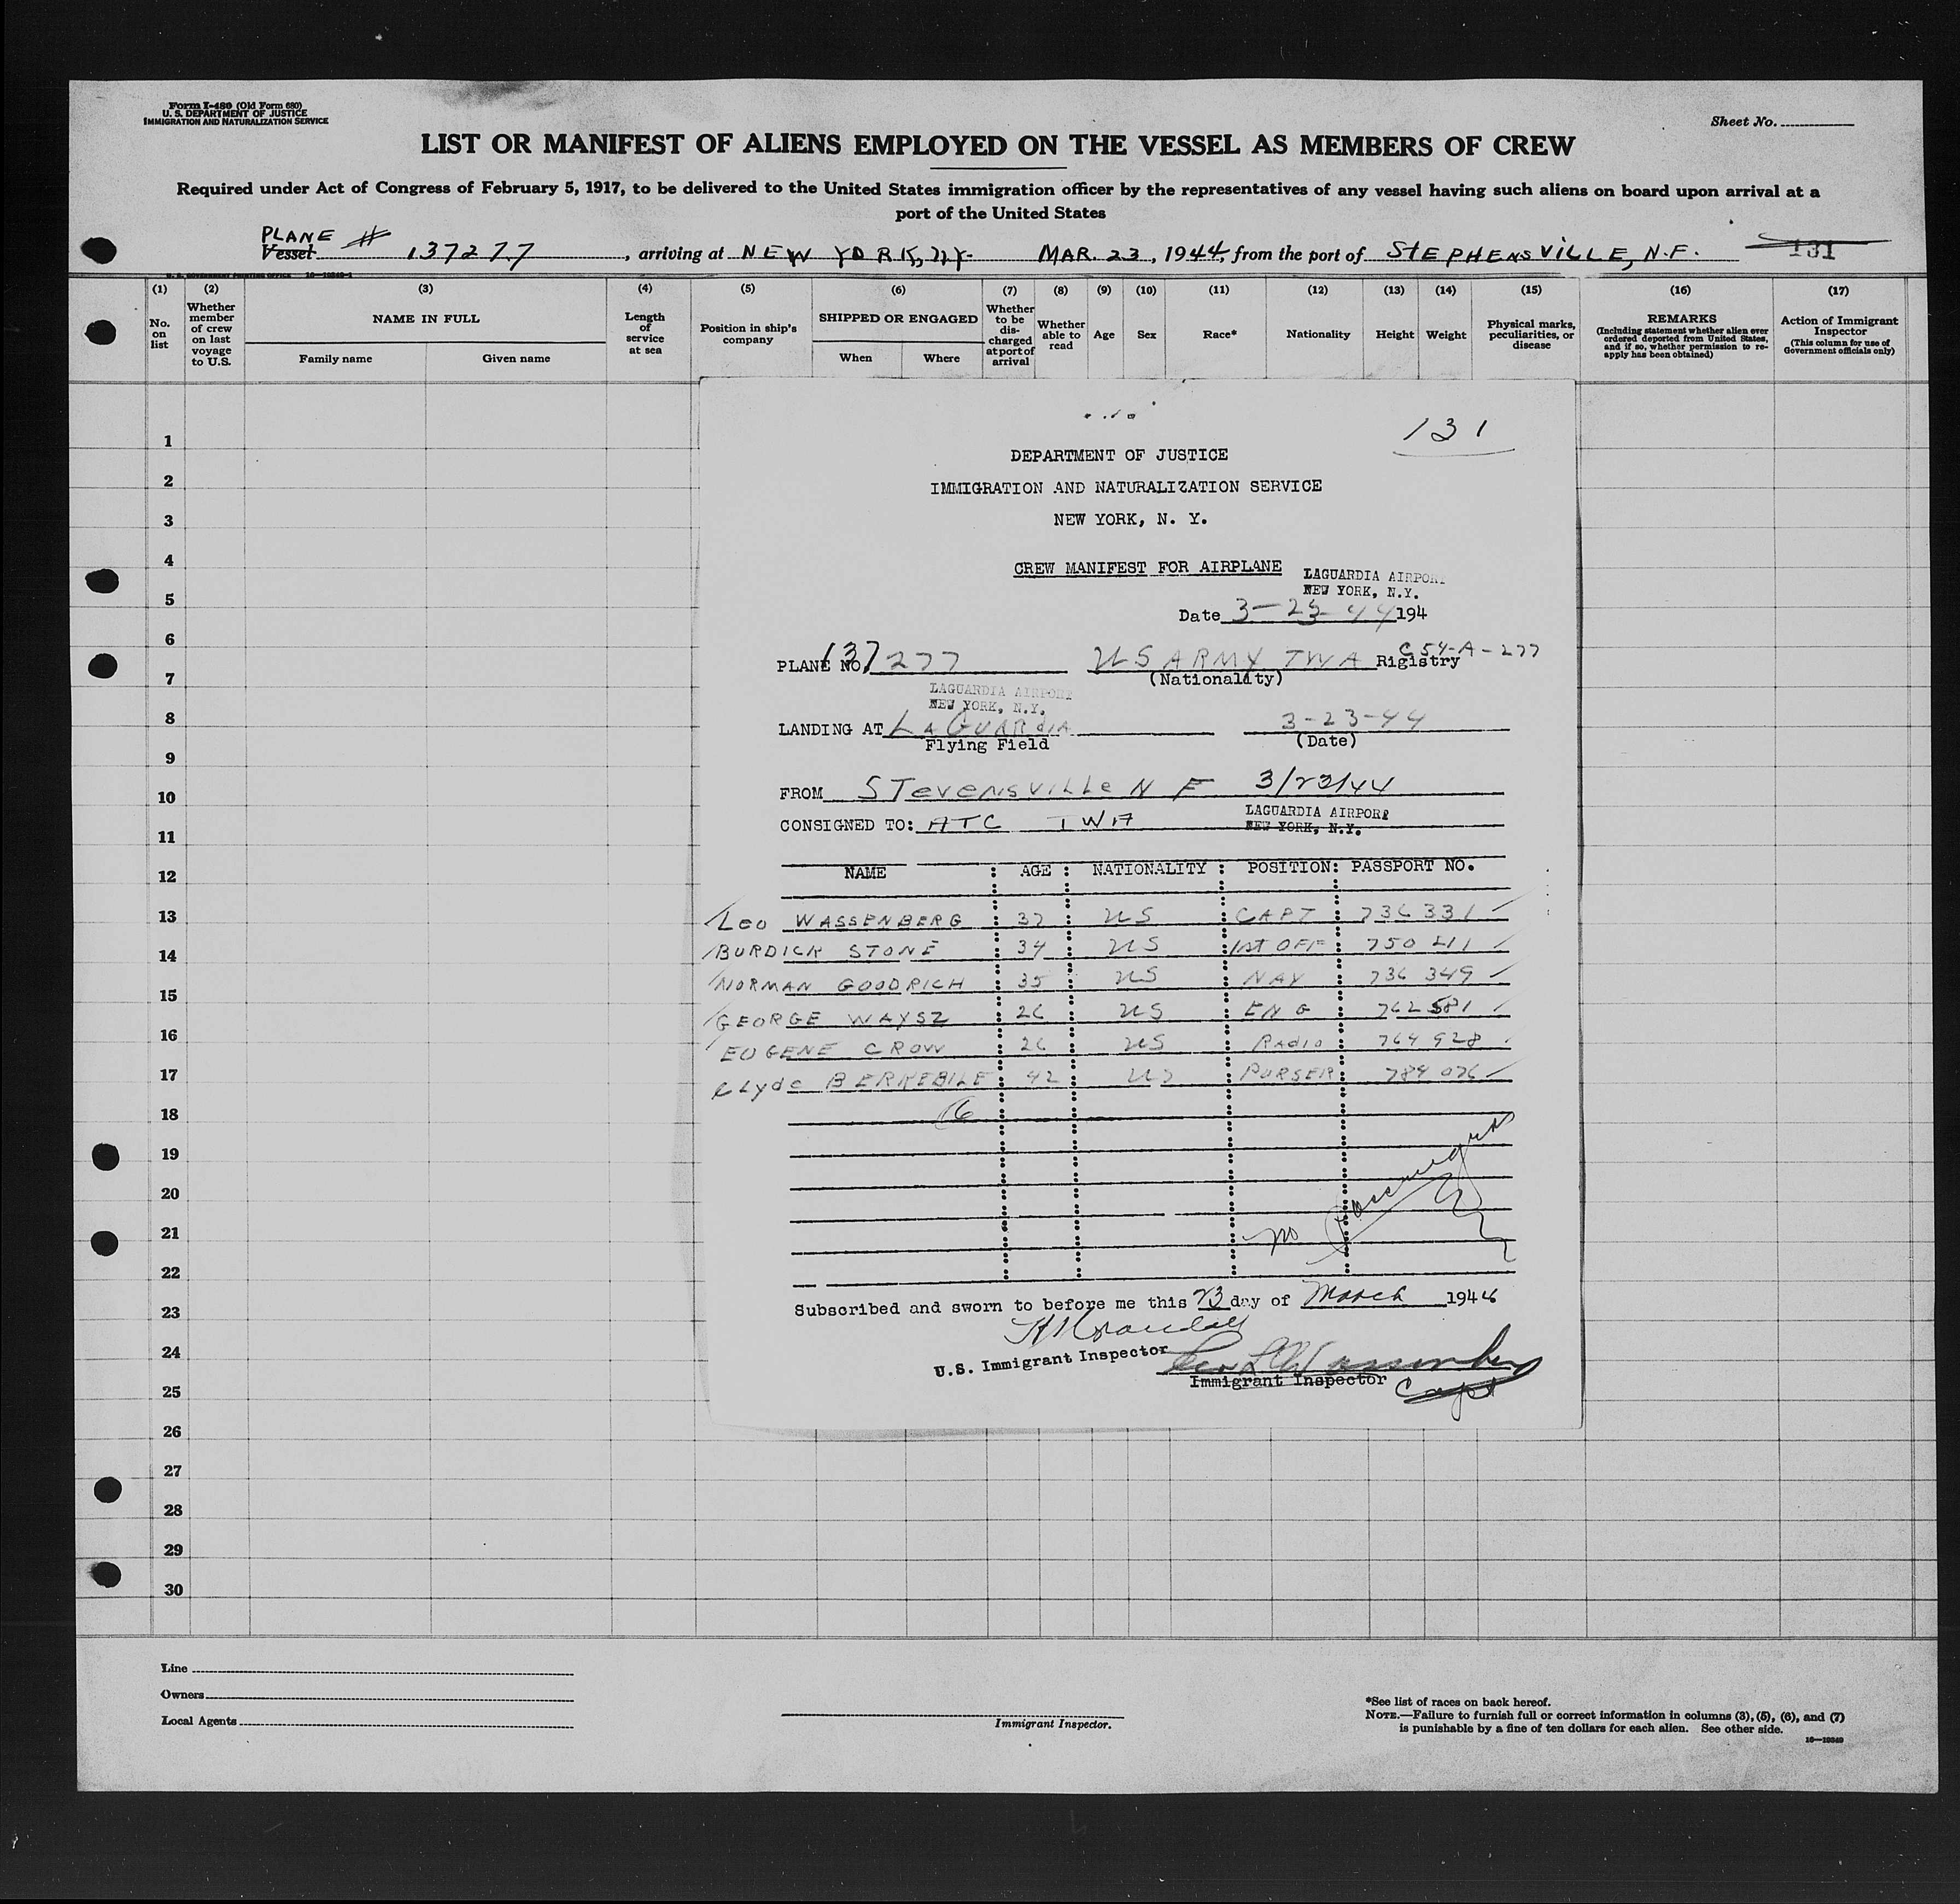 Form I-480 (Old Form 680)
U. S. DEPARTMENT OF JUSTICE
IMMIGRATION AND NATURALIZATION SERVICE
Sheet No.
LIST OR MANIFEST OF ALIENS EMPLOYED ON THE VESSEL AS MEMBERS OF CREW
Required under Act of Congress of February 5, 1917, to be delivered to the United States immigration officer by the representatives of any vessel having such aliens on board upon arrival at a
port of the United States
PLANE #
Vessel 137277, arriving at NEW YORK, NY. MAR. 23, 1944, from the port of STEPHENSVILLE, N.F. 131
(1) (2) (3) (4) (5) (6) (7) (8) (9) (10) (11) (12) (13) (14) (15) (16) (17)
No. on list
Whether member of crew on last voyage to U.S.
NAME IN FULL
Family name Given name
Length of service at sea
Position in ship's company
SHIPPED OR ENGAGED
When Where
Whether to be discharged at port of arrival
Whether able to read
Age
Sex
Race*
Nationality
Height
Weight
Physical marks, peculiarities, or disease
REMARKS
(Including statement whether alien ever ordered deported from United States, and if so, whether permission to reapply has been obtained)
Action of Immigrant Inspector
(This column for use of Government officials only)
1
2
3
4
5
6
7
8
9
10
11
12
13
14
15
16
17
18
19
20
21
22
23
24
25
26
27
28
29
30
131
DEPARTMENT OF JUSTICE
IMMIGRATION AND NATURALIZATION SERVICE
NEW YORK, N. Y.
CREW MANIFEST FOR AIRPLANE
LAGUARDIA AIRPORT
NEW YORK, N.Y.
Date 3-23-44 194
PLANE NO. 137277 US ARMY TWA Rigistry C54-A-277
(Nationality)
LAGUARDIA AIRPORT
NEW YORK, N.Y.
LANDING AT LAGUARDIA 3-23-44
Flying Field (Date)
FROM STevensville N F 3/23/44
CONSIGNED TO: ATC TWA
LAGUARDIA AIRPORT
NEW YORK, N.Y.
NAME : AGE : NATIONALITY : POSITION: PASSPORT NO.
Leo WASSENBERG 37 US CAPT 736331
BURDICK STONE 34 US 1st OFF 750 411
NORMAN GOODRICH 35 US NAV 736 349
GEORGE WAYSZ 26 US ENG 762 581
EUGENE CROW 26 US Radio 764 928
Clyde BERKEBILE 42 US PURSER 784 076
6
no passengers
Subscribed and sworn to before me this 23 day of March 1944
U.S. Immigrant Inspector
Leo L Wassenberg
Immigrant Inspector Capt
Line
Owners
Local Agents
Immigrant Inspector.
*See list of races on back hereof.
NOTE.—Failure to furnish full or correct information in columns (3), (5), (6), and (7)
is punishable by a fine of ten dollars for each alien. See other side.
16—10349